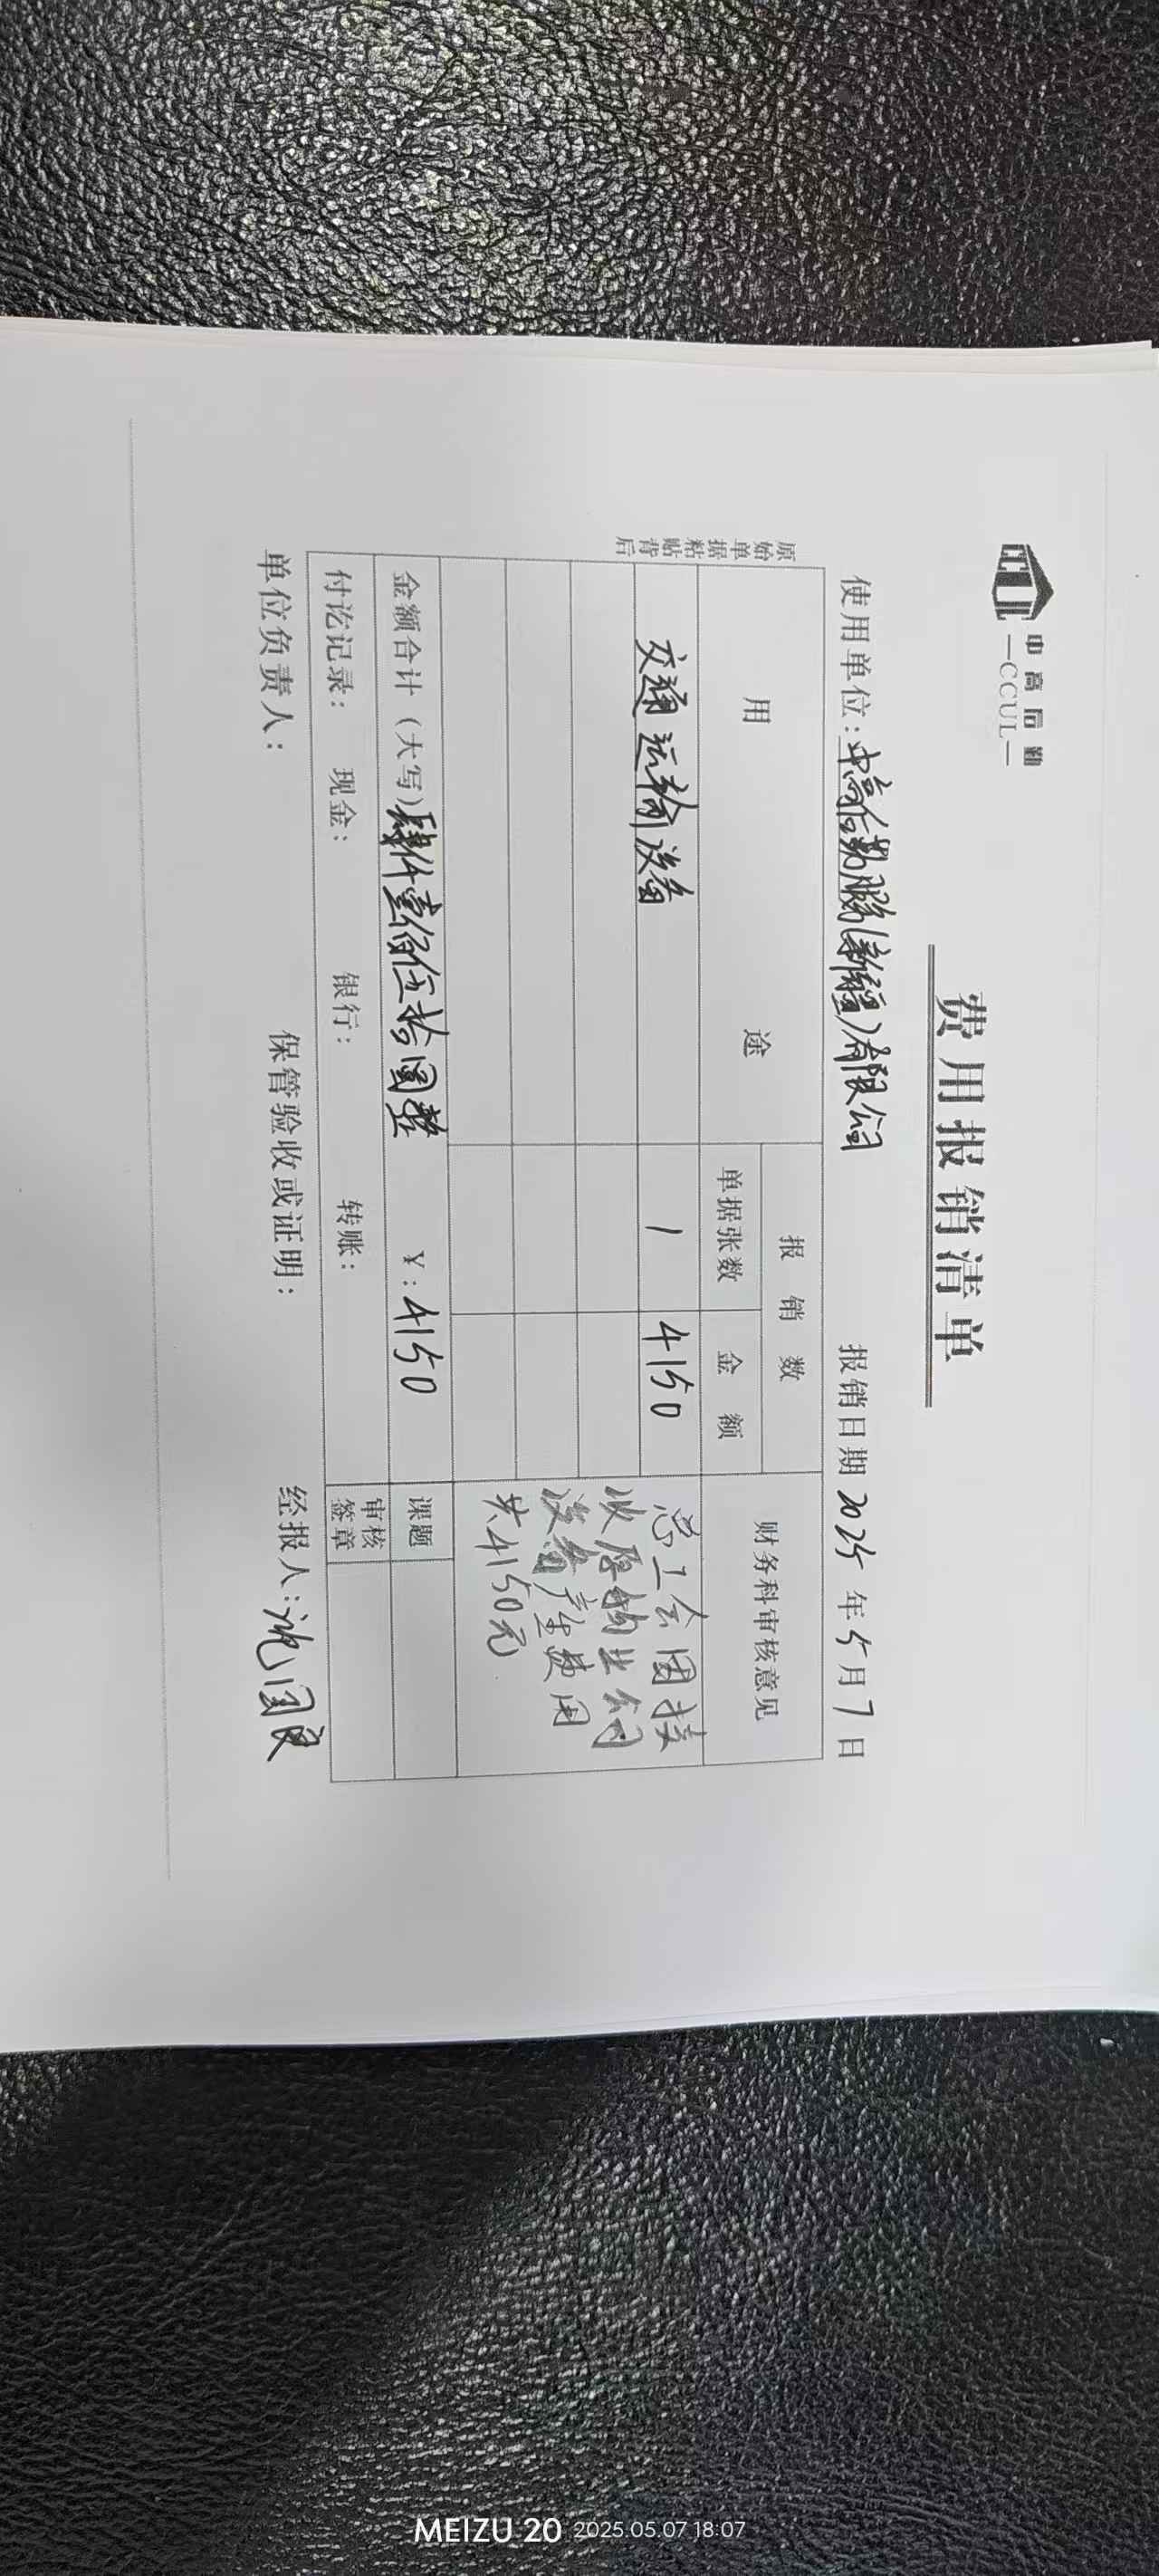 中高后勤
—CCUL—
费用报销清单
使用单位：中高后勤服务(新疆)有限公司 报销日期 2025 年 5 月 7 日
原始单据粘贴背后
用 途 报 销 数 财务科审核意见
单据张数 金 额
交通运输设备 1 4150
总工会因接
收原物业公司
设备产生费用
共4150元
金额合计（大写）肆仟壹佰伍拾圆整 ¥：4150 课题
付讫记录： 现金： 银行： 转账： 审核签章
单位负责人： 保管验收或证明： 经报人：沈国良
MEIZU 20 2025.05.07 18:07